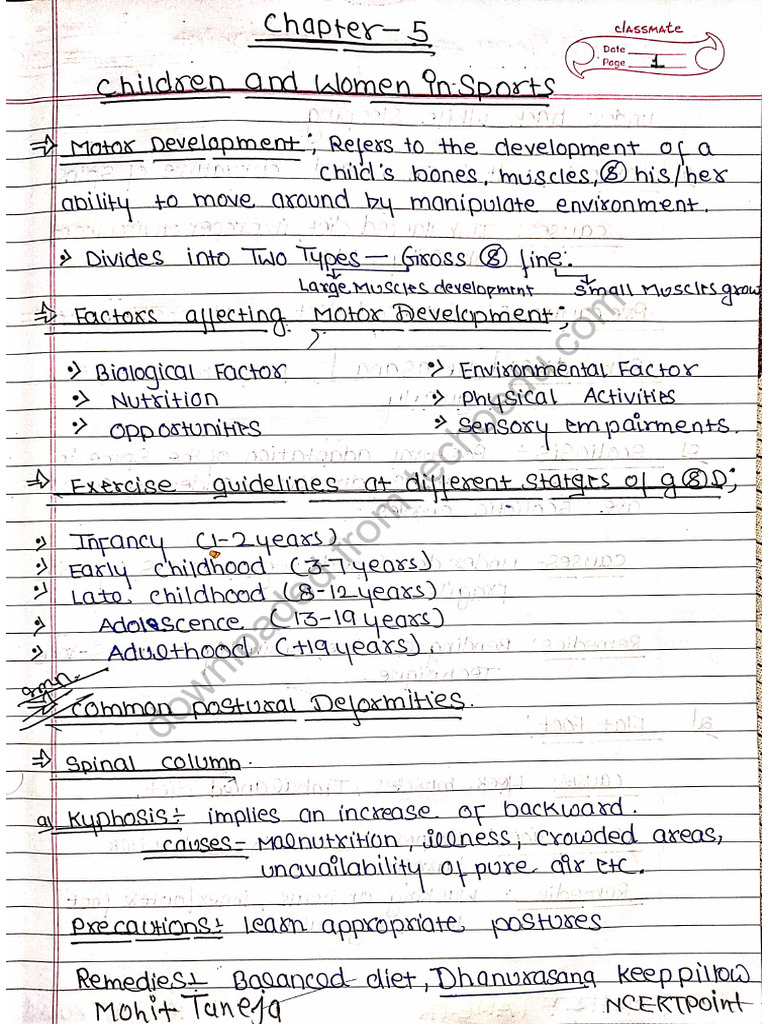 Chapter-5
classmate
Date
Page 1
Children and Women in Sports
⇒ Motor Development: Refers to the development of a
child's bones, muscles, & his/her
ability to move around by manipulate environment.
Divides into Two Types — Gross & fine:
Large Muscles development small Muscles grow
⇒ Factors affecting Motor Development;
Biological Factor Environmental Factor
Nutrition Physical Activities
Opportunities Sensory empairments.
⇒ Exercise guidelines at different statges of g & D;
Infancy (1-2 years)
Early childhood (3-7 years)
Late childhood (8-12 years)
Adolescence (13-19 years)
Adulthood (+19 years),
⇒ Common Postural Deformities.
⇒ Spinal column.
a) Kyphosis÷ implies an increase of backward.
causes- Malnutrition, illness, crowded areas,
unavailability of pure air etc.
Precautions÷ Learn appropriate postures
Remedies÷ Balanced diet, Dhanurasana keep pillow
Mohit Taneja NCERTPoint